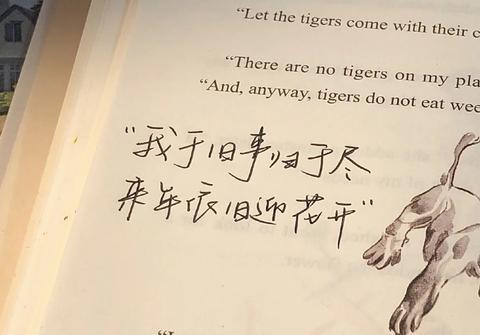 “Let the tigers come with their c
“There are no tigers on my pla
“And, anyway, tigers do not eat wee
“我于旧事归于尽
来年依旧迎花开”